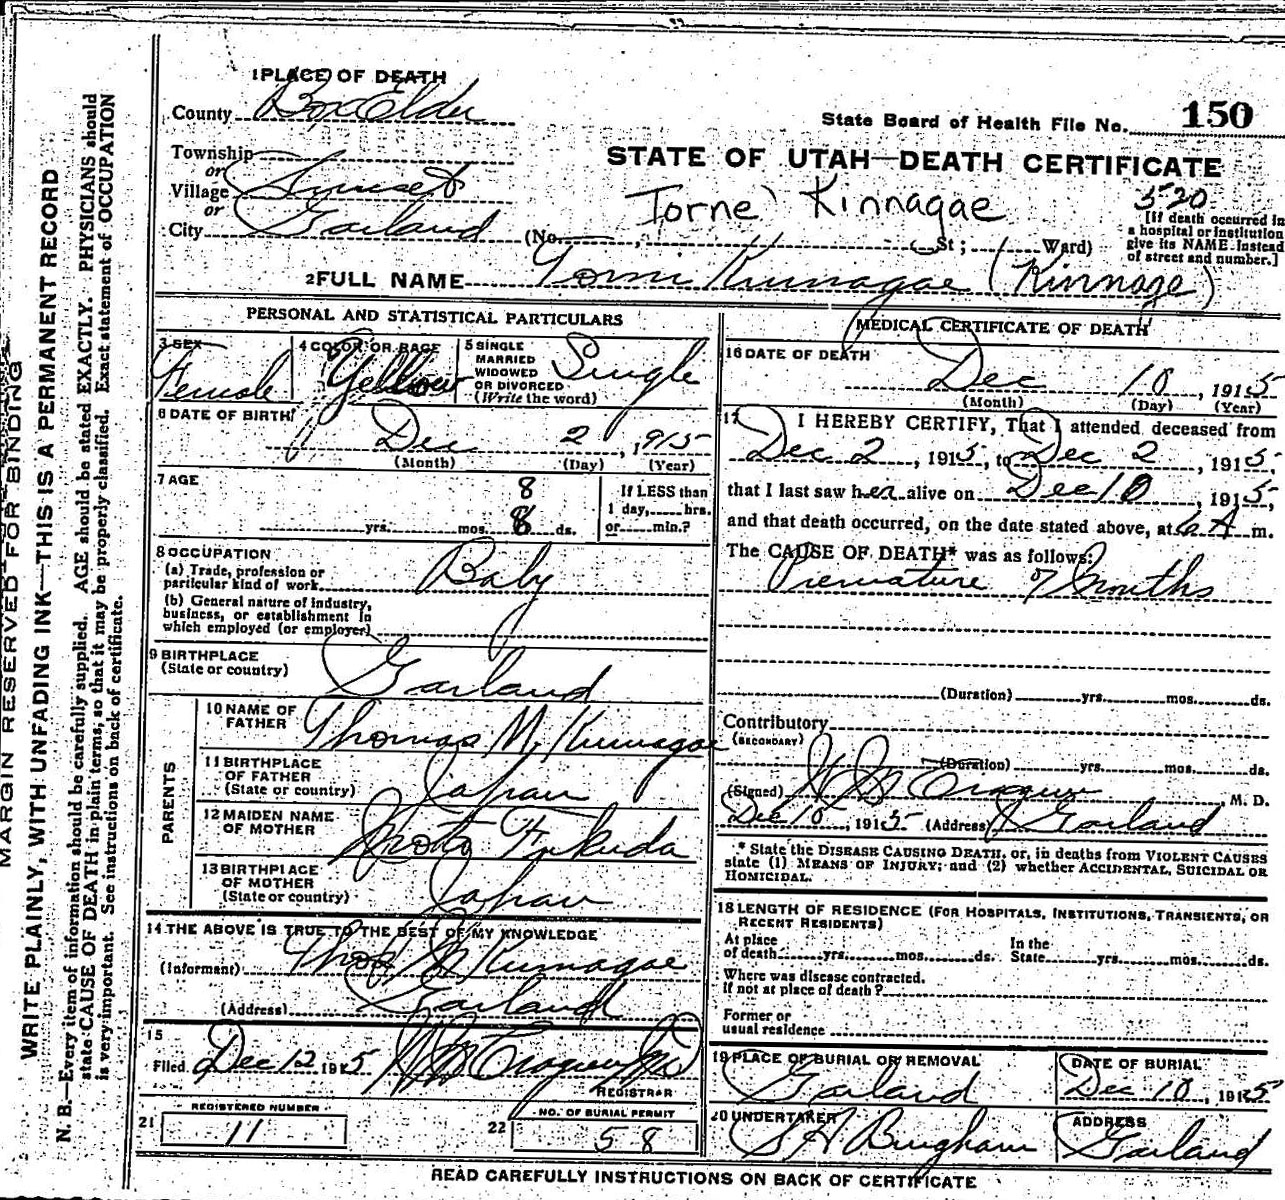 1 PLACE OF DEATH
County Box Elder
State Board of Health File No. 150
Township
or
Village Sunset
or
City Garland
STATE OF UTAH—DEATH CERTIFICATE
Torne Kinnagae
520
[If death occurred in
a hospital or institution
give its NAME instead
of street and number.]
(No. St; Ward)
2 FULL NAME Tomi Kumagae (Kinnage)
PERSONAL AND STATISTICAL PARTICULARS
3 SEX
Female
4 COLOR OR RACE
Yellow
5 SINGLE
MARRIED
WIDOWED
OR DIVORCED
(Write the word)
Single
6 DATE OF BIRTH
Dec 2, 1915
(Month) (Day) (Year)
7 AGE
8
yrs. mos. 8 ds.
If LESS than
1 day, hrs.
or min.?
8 OCCUPATION
(a) Trade, profession or
particular kind of work Baby
(b) General nature of industry,
business, or establishment in
which employed (or employer)
9 BIRTHPLACE
(State or country) Garland
PARENTS
10 NAME OF
FATHER Thomas M, Kumagae
11 BIRTHPLACE
OF FATHER
(State or country) Japan
12 MAIDEN NAME
OF MOTHER Moto Fukuda
13 BIRTHPLACE
OF MOTHER
(State or country) Japan
14 THE ABOVE IS TRUE TO THE BEST OF MY KNOWLEDGE
(Informant) Thos M Kumagae
(Address) Garland
15
Filed Dec 12 1915
REGISTRAR
21
REGISTERED NUMBER
11
22
NO. OF BURIAL PERMIT
58
MEDICAL CERTIFICATE OF DEATH
16 DATE OF DEATH
Dec 10, 1915
(Month) (Day) (Year)
17 I HEREBY CERTIFY, That I attended deceased from
Dec 2, 1915, to Dec 2, 1915,
that I last saw her alive on Dec 10, 1915,
and that death occurred, on the date stated above, at 6 A m.
The CAUSE OF DEATH* was as follows:
Premature 7 months
(Duration) yrs. mos. ds.
Contributory
(SECONDARY)
(Duration) yrs. mos. ds.
(Signed) M. D.
Dec 10, 1915 (Address) Garland
* State the DISEASE CAUSING DEATH, or, in deaths from VIOLENT CAUSES
state (1) MEANS OF INJURY; and (2) whether ACCIDENTAL, SUICIDAL OR
HOMICIDAL.
18 LENGTH OF RESIDENCE (FOR HOSPITALS, INSTITUTIONS, TRANSIENTS, OR
RECENT RESIDENTS)
At place
of death yrs. mos. ds.
In the
State yrs. mos. ds.
Where was disease contracted.
If not at place of death?
Former or
usual residence
19 PLACE OF BURIAL OR REMOVAL
Garland
DATE OF BURIAL
Dec 10, 1915
20 UNDERTAKER
S H Bingham
ADDRESS
Garland
READ CAREFULLY INSTRUCTIONS ON BACK OF CERTIFICATE
MARGIN RESERVED FOR BINDING
WRITE PLAINLY, WITH UNFADING INK—THIS IS A PERMANENT RECORD
N. B.—Every item of information should be carefully supplied. AGE should be stated EXACTLY. PHYSICIANS should
state CAUSE OF DEATH in plain terms, so that it may be properly classified. Exact statement of OCCUPATION
is very important. See instructions on back of certificate.